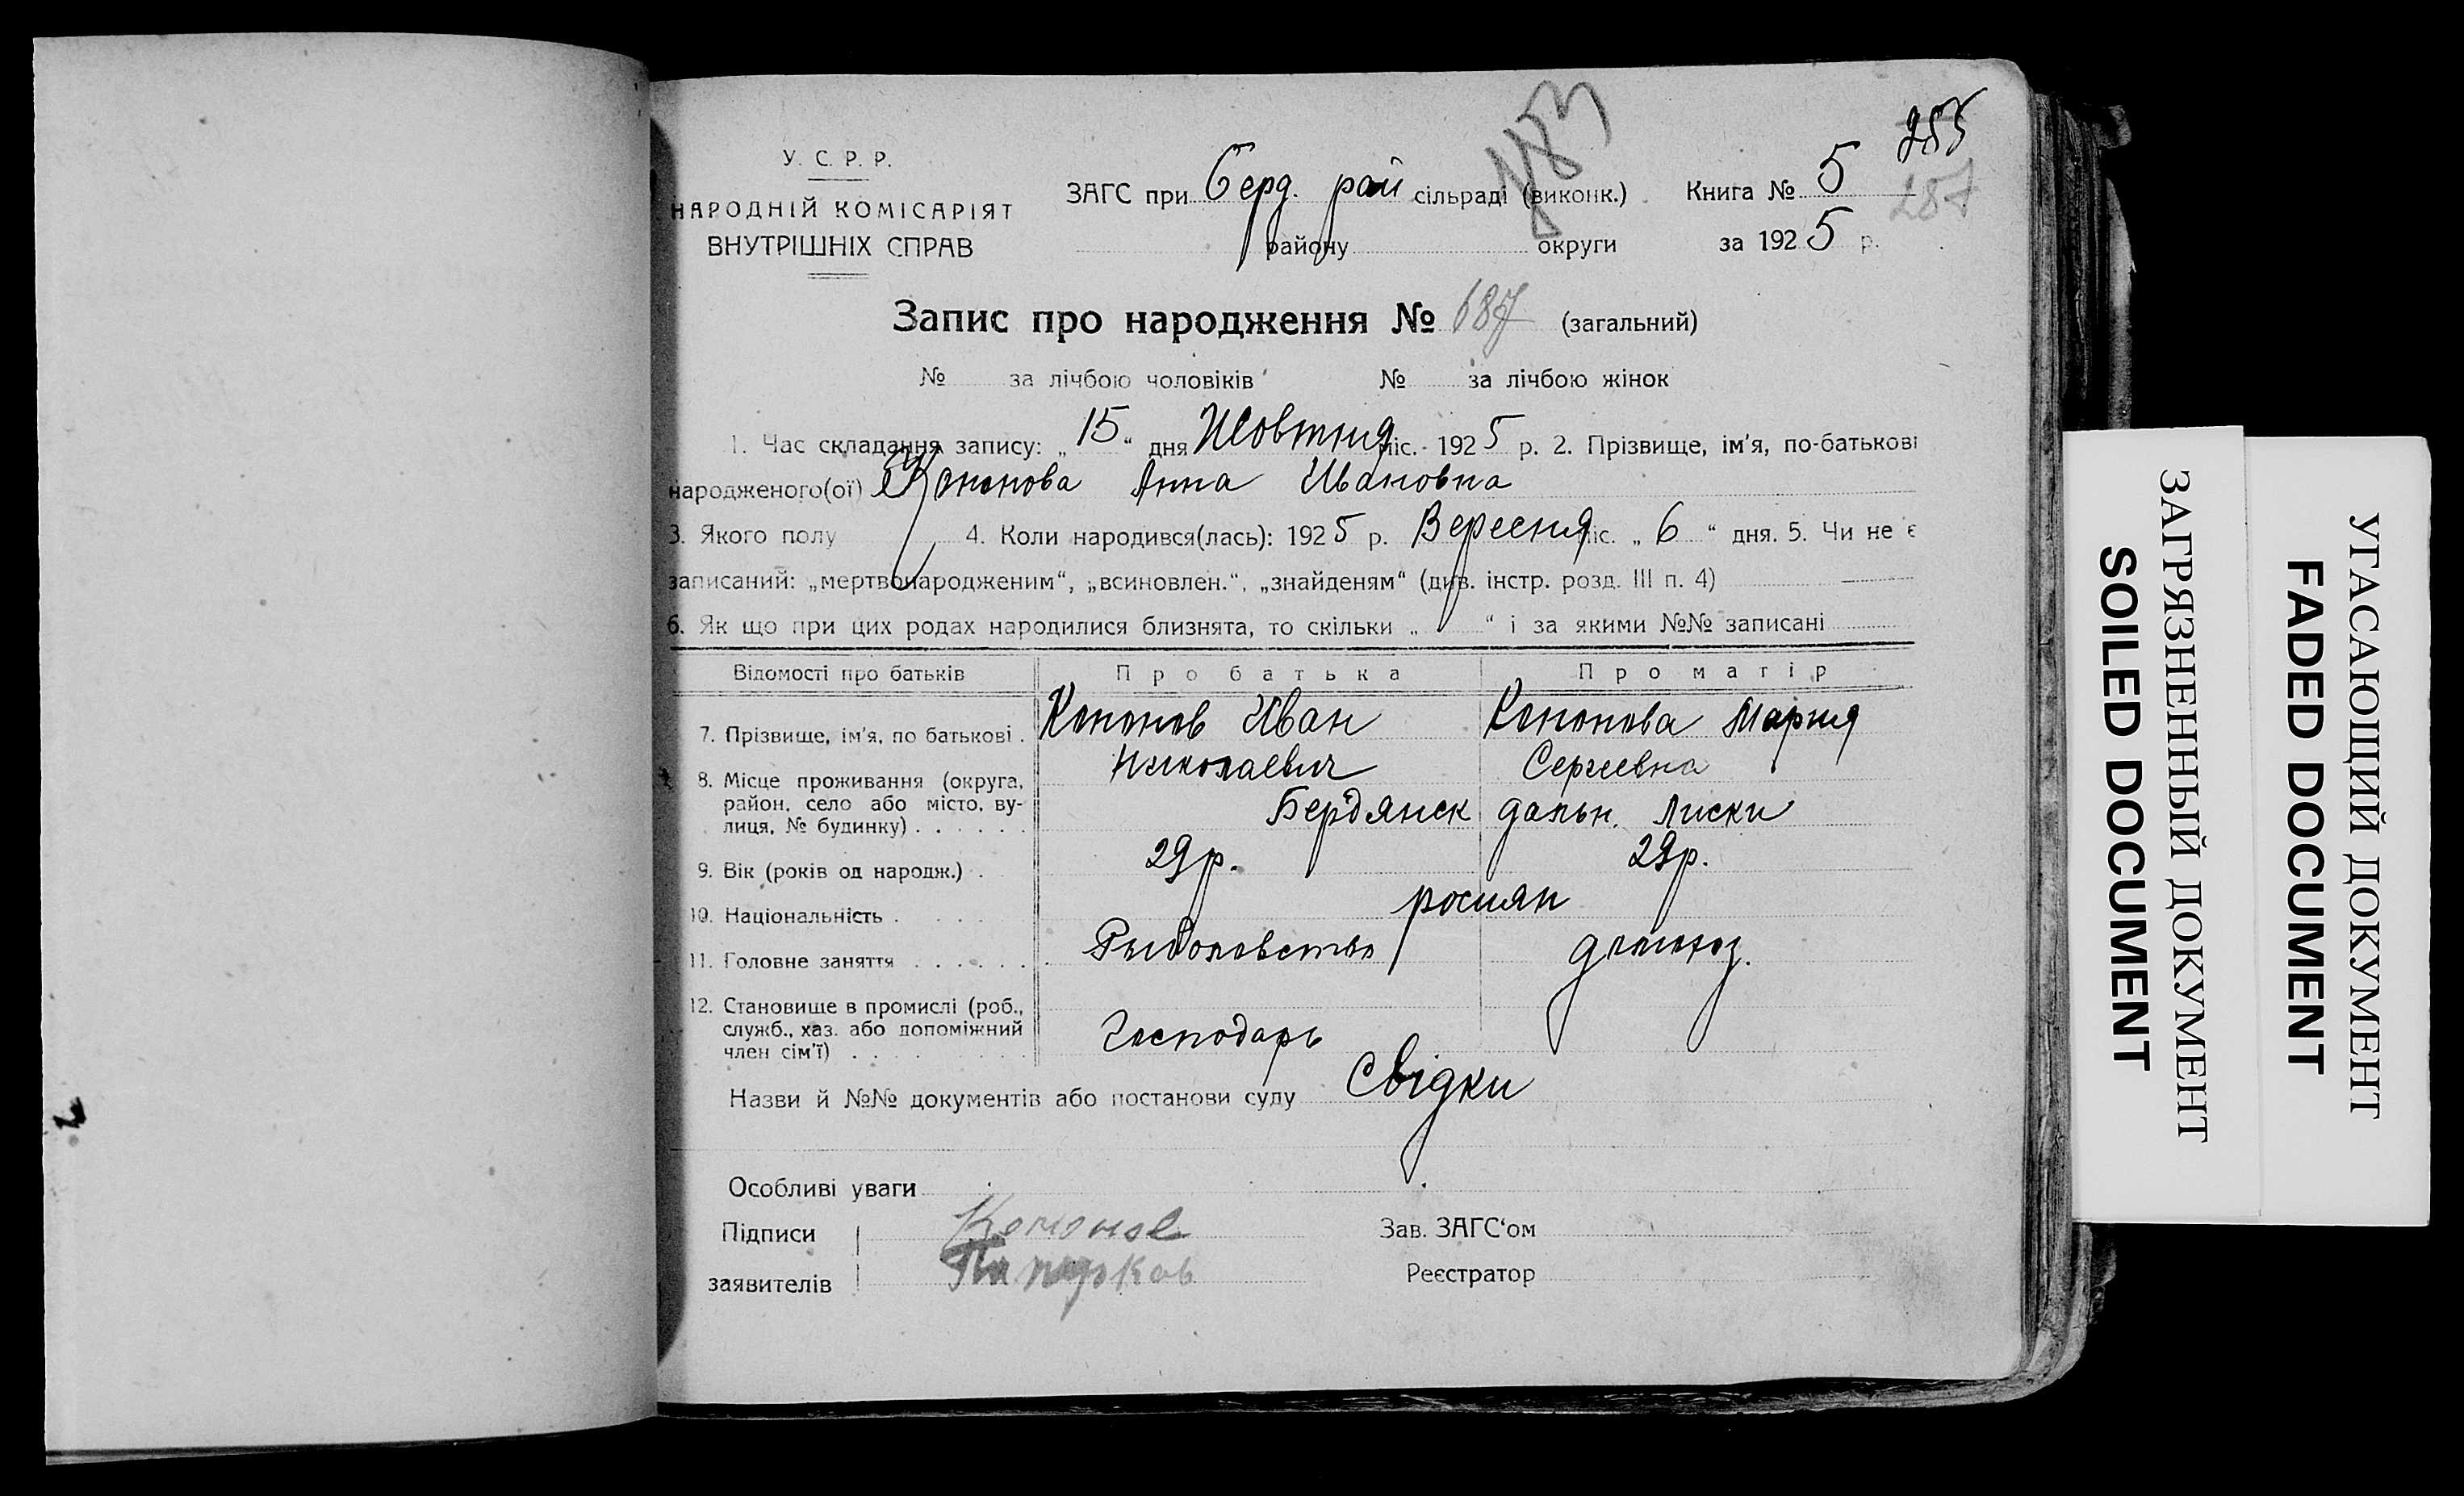 285
483
287
У. С. Р. Р.
НАРОДНІЙ КОМІСАРІЯТ
ВНУТРІШНІХ СПРАВ
ЗАГС при Берд. рай сільраді (виконк.)
району округи
Книга № 5
за 1925 р.
Запис про народження № 687 (загальний)
№ за лічбою чоловіків № за лічбою жінок
1. Час складання запису: „15“ дня Жовтня міс. 1925 р. 2. Прізвище, ім'я, по-батькові
народженого(ої) Кононова Анна Ивановна
3. Якого полу 4. Коли народився(лась): 1925 р. Вересня міс. „6“ дня. 5. Чи не є
записаний: „мертвонародженим“, „всиновлен.“, „знайденям“ (див. інстр. розд. III п. 4)
6. Як що при цих родах народилися близнята, то скільки „ “ і за якими №№ записані
Відомості про батьків Про батька Про матір
7. Прізвище, ім'я, по батькові . Кононов Иван Кононова Мария
Николаевич Сергеевна
8. Місце проживання (округа,
район, село або місто, ву-
лиця, № будинку) . . . . . . Бердянск дальн. Лиски
9. Вік (років од народж.) . 29р. 29р.
10. Національність . . . . росиян
11. Головне заняття . . . . . . Рыболовство домохоз.
12. Становище в промислі (роб.,
служб., хаз. або допоміжний
член сім'ї) . . . . Господарь
Назви й №№ документів або постанови суду Свідки
Особливі уваги
Підписи Кононов
заявителів
Зав. ЗАГС'ом
Реєстратор
ЗАГРЯЗНЕННЫЙ ДОКУМЕНТ
SOILED DOCUMENT
УГАСАЮЩИЙ ДОКУМЕНТ
FADED DOCUMENT